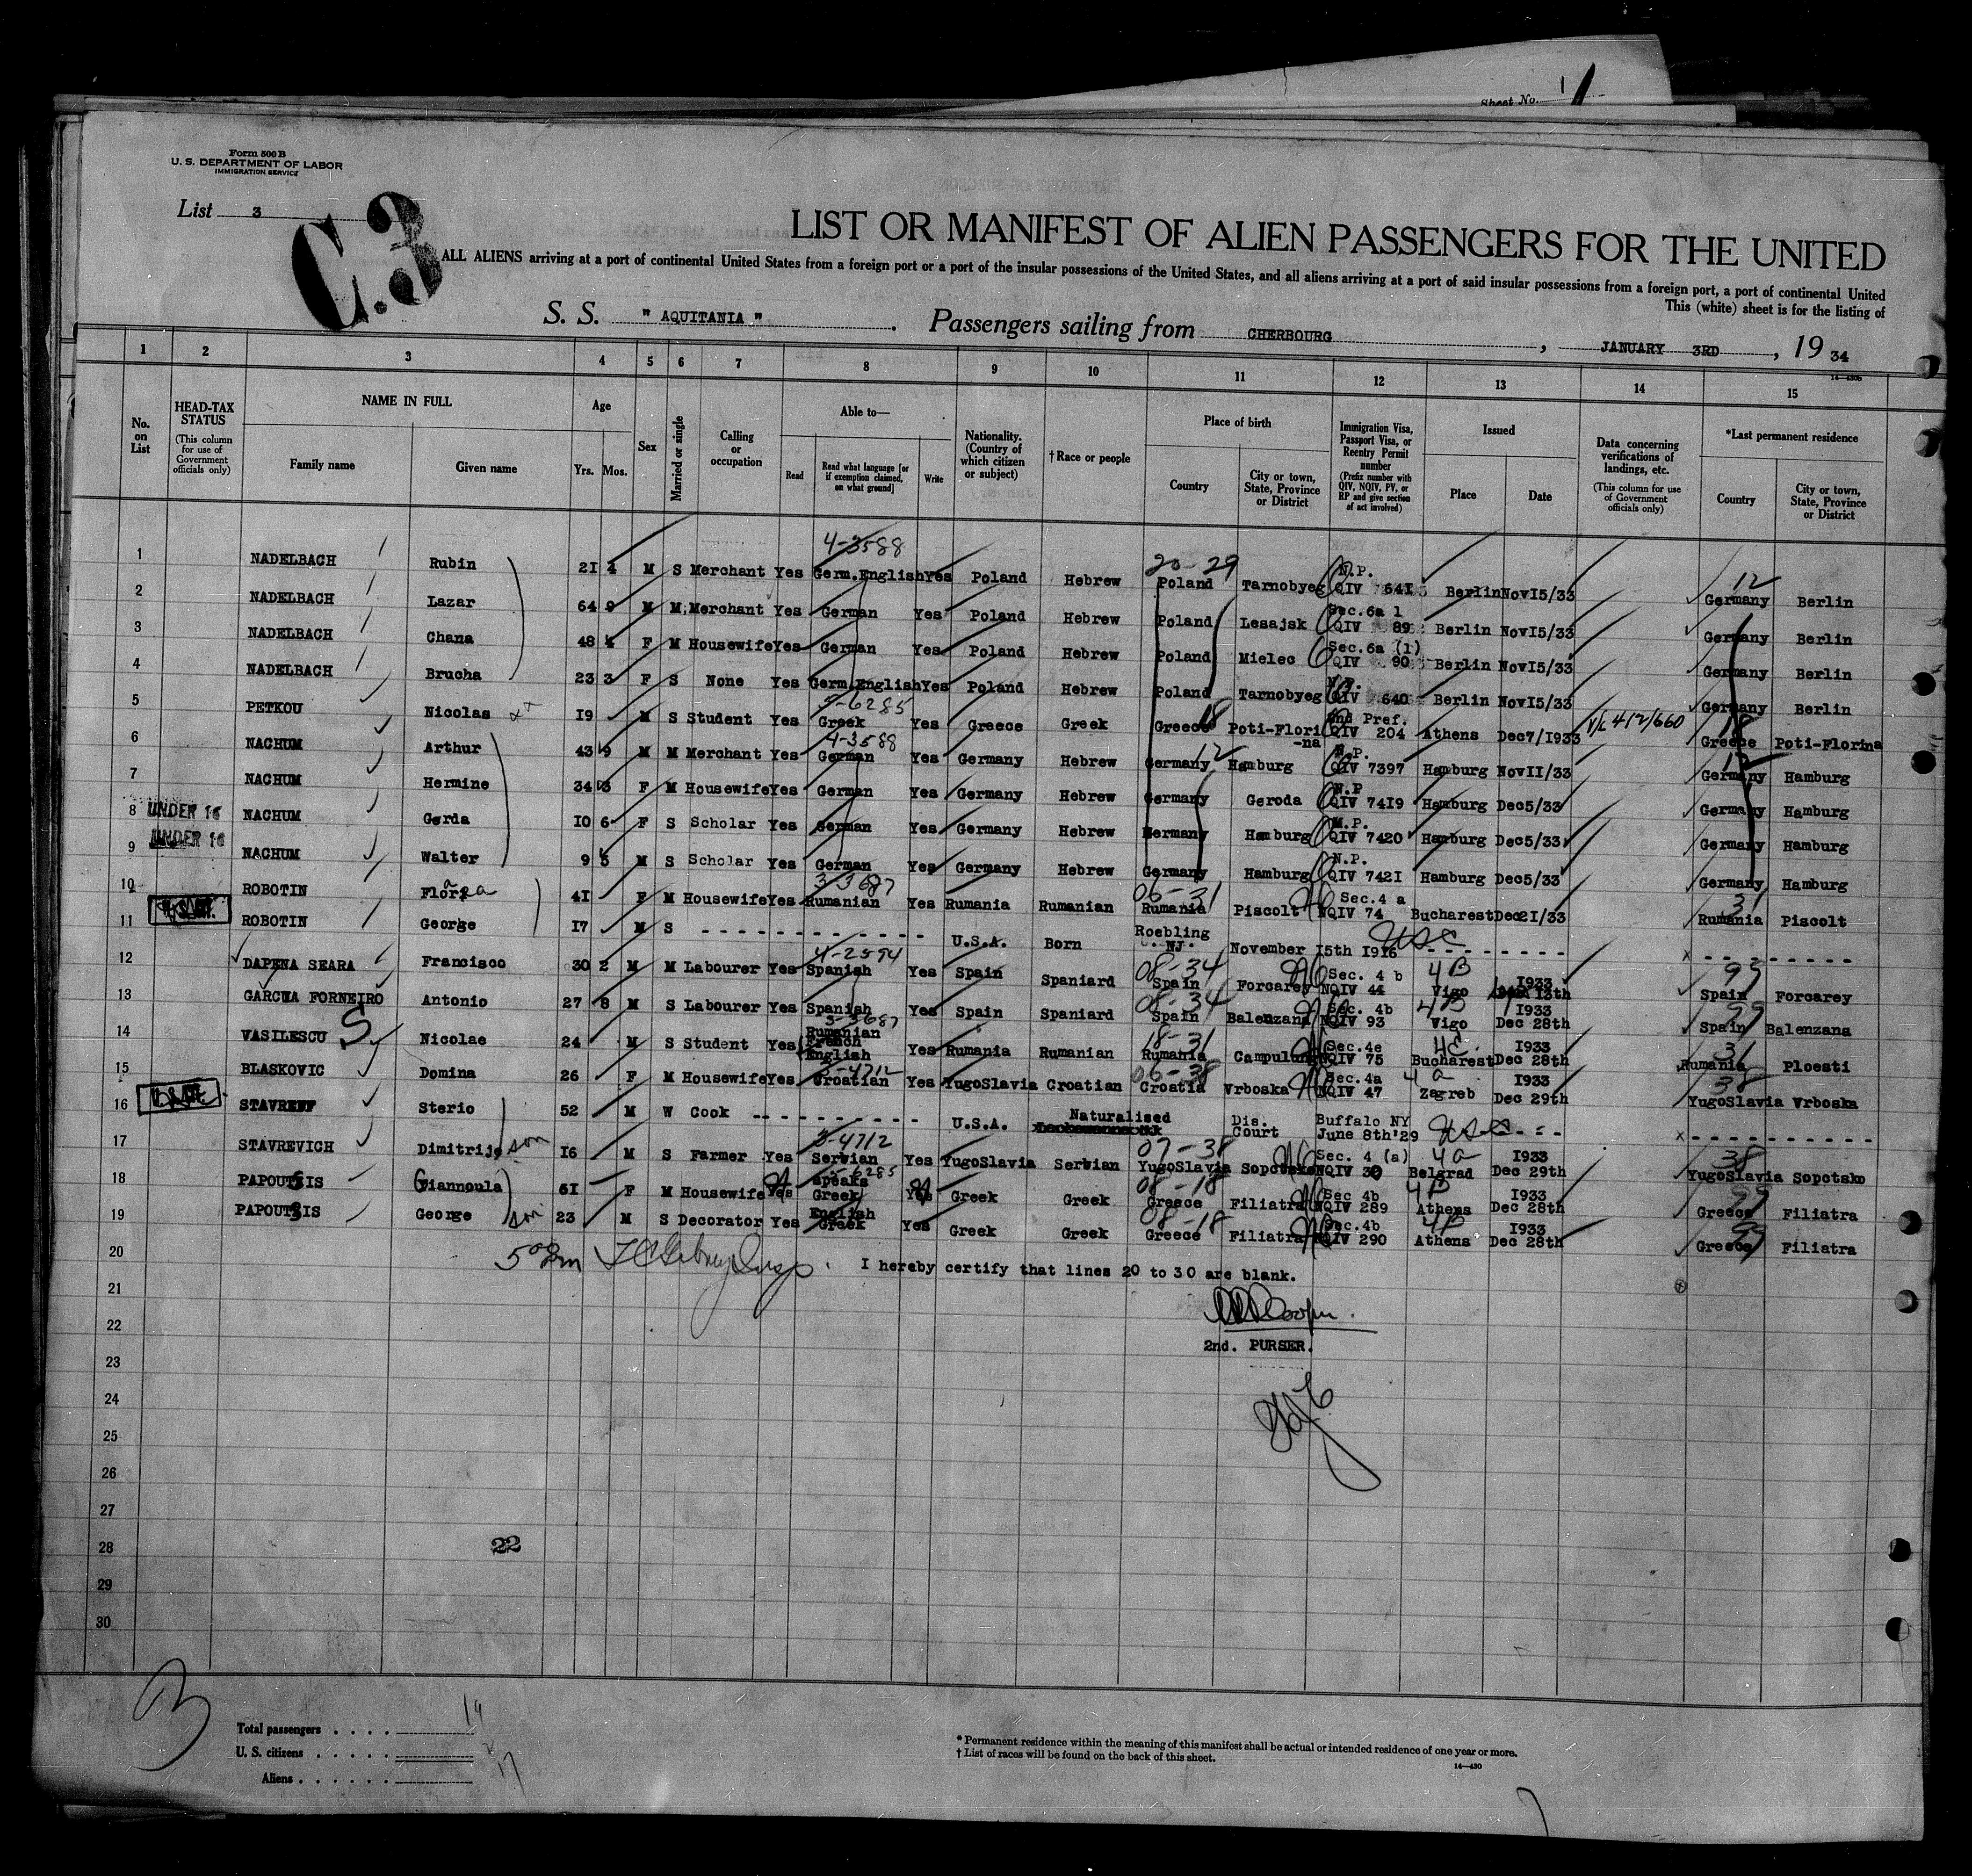 Sheet No. 1
Form 500 B
U. S. DEPARTMENT OF LABOR
IMMIGRATION SERVICE
List 3
C.3
LIST OR MANIFEST OF ALIEN PASSENGERS FOR THE UNITED
ALL ALIENS arriving at a port of continental United States from a foreign port or a port of the insular possessions of the United States, and all aliens arriving at a port of said insular possessions from a foreign port, a port of continental United
This (white) sheet is for the listing of
S. S. " AQUITANIA " . Passengers sailing from CHERBOURG , JANUARY 3RD , 19 34
1 2 3 4 5 6 7 8 9 10 11 12 13 14 15
No. on List
HEAD-TAX STATUS (This column for use of Government officials only)
NAME IN FULL
Family name Given name
Age
Yrs. Mos.
Sex
Married or single
Calling or occupation
Able to—
Read Read what language [or if exemption claimed, on what ground] Write
Nationality. (Country of which citizen or subject)
†Race or people
Place of birth
Country City or town, State, Province or District
Immigration Visa, Passport Visa, or Reentry Permit number (Prefix number with QIV, NQIV, PV, or RP and give section of act involved)
Issued
Place Date
Data concerning verifications of landings, etc. (This column for use of Government officials only)
*Last permanent residence
Country City or town, State, Province or District
4-3588 20-29 N.P. 12
1 NADELBACH Rubin 2I 4 M S Merchant Yes Germ.English Yes Poland Hebrew Poland Tarnobyeg QIV 641 Berlin NovI5/33 Germany Berlin
Sec.6a 1
2 NADELBACH Lazar 64 9 M M Merchant Yes German Yes Poland Hebrew Poland Lesajsk QIV 89 Berlin NovI5/33 Germany Berlin
Sec.6a (1)
3 NADELBACH Chana 48 4 F M Housewife Yes German Yes Poland Hebrew Poland Mielec QIV 90 Berlin NovI5/33 Germany Berlin
N.P.
4 NADELBACH Brucha 23 3 F S None Yes Germ.English Yes Poland Hebrew Poland Tarnobyeg QIV 640 Berlin NovI5/33 Germany Berlin
5-6285 18 2nd Pref. V/L 412/660 18
5 PETKOU Nicolas I9 M S Student Yes Greek Yes Greece Greek Greece Poti-Flori-na QIV 204 Athens Dec7/I933 Greece Poti-Florina
4-3588 12 N.P. 12
6 NACHUM Arthur 43 9 M M Merchant Yes German Yes Germany Hebrew Germany Hamburg QIV 7397 Hamburg NovII/33 Germany Hamburg
N.P
7 NACHUM Hermine 34 3 F M Housewife Yes German Yes Germany Hebrew Germany Geroda QIV 74I9 Hamburg Dec5/33 Germany Hamburg
N.P.
8 UNDER 16 NACHUM Gerda I0 6 F S Scholar Yes German Yes Germany Hebrew Germany Hamburg QIV 7420 Hamburg Dec5/33 Germany Hamburg
N.P.
9 UNDER 16 NACHUM Walter 9 5 M S Scholar Yes German Yes Germany Hebrew Germany Hamburg QIV 742I Hamburg Dec5/33 Germany Hamburg
3-3687 06-31 Sec.4 a 31
10 ROBOTIN 4I F M Housewife Yes Rumanian Yes Rumania Rumanian Rumania Piscolt NQIV 74 Bucharest Dec2I/33 Rumania Piscolt
11 ROBOTIN George I7 M S - - - U.S.A. Born Roebling NJ. November I5th I9I6 USC - - - x - - -
4-2594 08-34 Sec. 4 b 4B I933 99
12 DAPENA SEARA Francisco 30 2 M M Labourer Yes Spanish Yes Spain Spaniard Spain Forcarey NQIV 44 Vigo 13th Spain Forcarey
08-34 Sec. 4b 4B I933 99
13 GARCIA FORNEIRO Antonio 27 8 M S Labourer Yes Spanish Yes Spain Spaniard Spain Balenzana NQIV 93 Vigo Dec 28th Spain Balenzana
3-3687 18-31 Sec.4e 4E. I933 31
14 VASILESCU S Nicolae 24 M S Student Yes Rumanian French English Yes Rumania Rumanian Rumania Campulung NQIV 75 Bucharest Dec 28th Rumania Ploesti
5-4712 06-38 Sec.4a 4a I933 38
15 BLASKOVIC Domina 26 F M Housewife Yes Croatian Yes YugoSlavia Croatian Croatia Vrboska NQIV 47 Zagreb Dec 29th YugoSlavia Vrboska
16 Sterio 52 M W Cook - - - U.S.A. Naturalised Dis. Court Buffalo NY June 8th'29 USC - - - x - - -
3-4712 07-38 Sec. 4 (a) 4a I933 38
17 STAVREVICH Dimitrije son I6 M S Farmer Yes Serbian Yes YugoSlavia Serbian YugoSlavia Sopotsko NQIV 30 Belgrad Dec 29th YugoSlavia Sopotsko
5-6285 08-18 Sec 4b 4B I933 99
18 PAPOUTSIS Giannoula 51 F M Housewife Yes speaks Greek Yes Greek Greek Greece Filiatra NQIV 289 Athens Dec 28th Greece Filiatra
08-18 Sec.4b 4B I933 99
19 PAPOUTSIS George son 23 M S Decorator Yes English Greek Yes Greek Greek Greece Filiatra NQIV 290 Athens Dec 28th Greece Filiatra
20 I hereby certify that lines 20 to 30 are blank.
21
22 2nd. PURSER.
23
24
25
26
27
28 22
29
30
Total passengers . . . . 19
U. S. citizens . . . . . 2
Aliens . . . . . . 17
* Permanent residence within the meaning of this manifest shall be actual or intended residence of one year or more.
† List of races will be found on the back of this sheet.
14—430